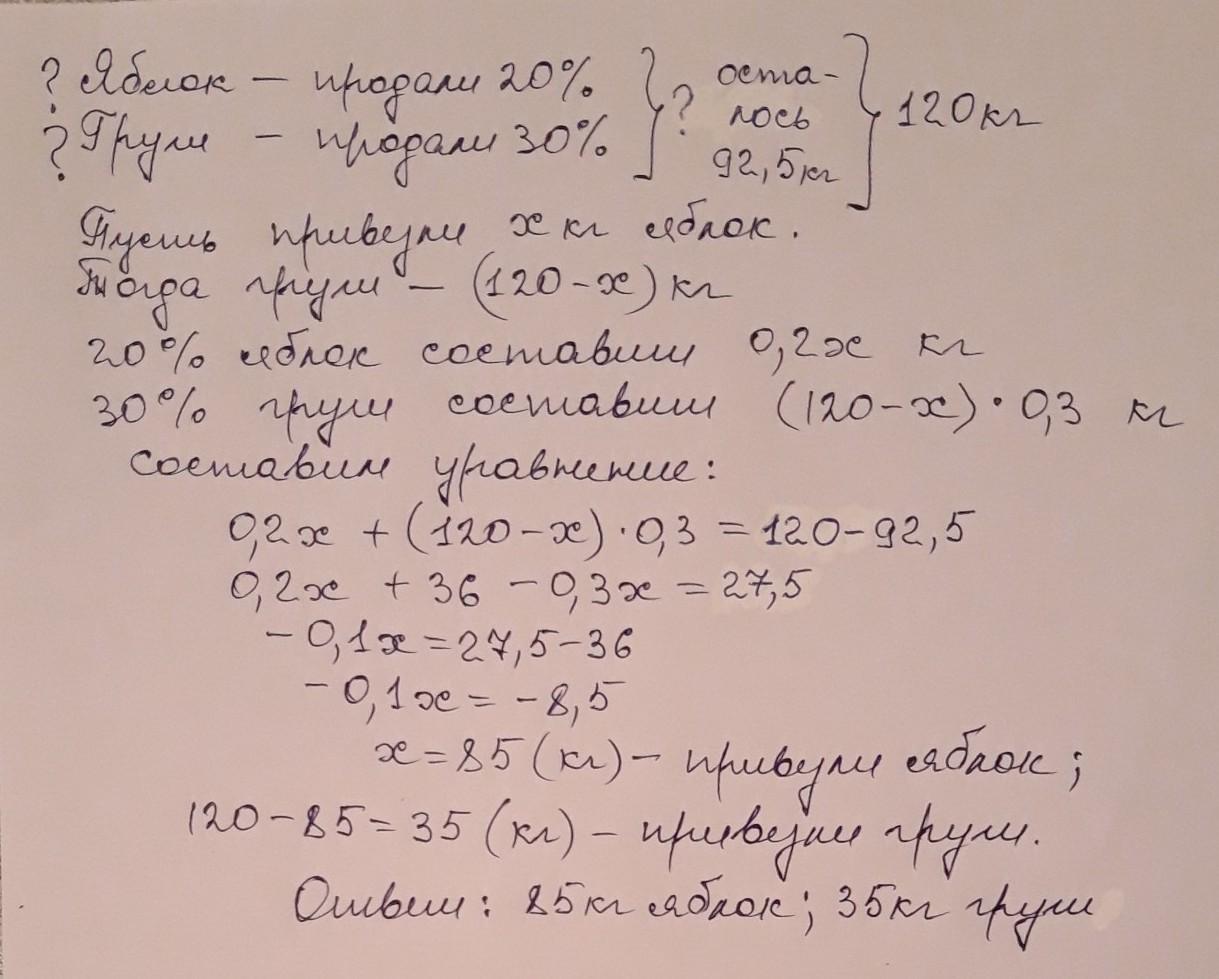 ? Яблок — продали 20% } ? оста- } 120кг
? Груш — продали 30% лось
92,5кг
Пусть привезли x кг яблок.
Тогда груш — (120-x) кг
20% яблок составит 0,2x кг
30% груш составит (120-x)·0,3 кг
Составим уравнение:
0,2x + (120-x)·0,3 = 120-92,5
0,2x + 36 - 0,3x = 27,5
-0,1x = 27,5-36
-0,1x = -8,5
x = 85 (кг) — привезли яблок;
120-85=35 (кг) — привезли груш.
Ответ: 85кг яблок; 35кг груш